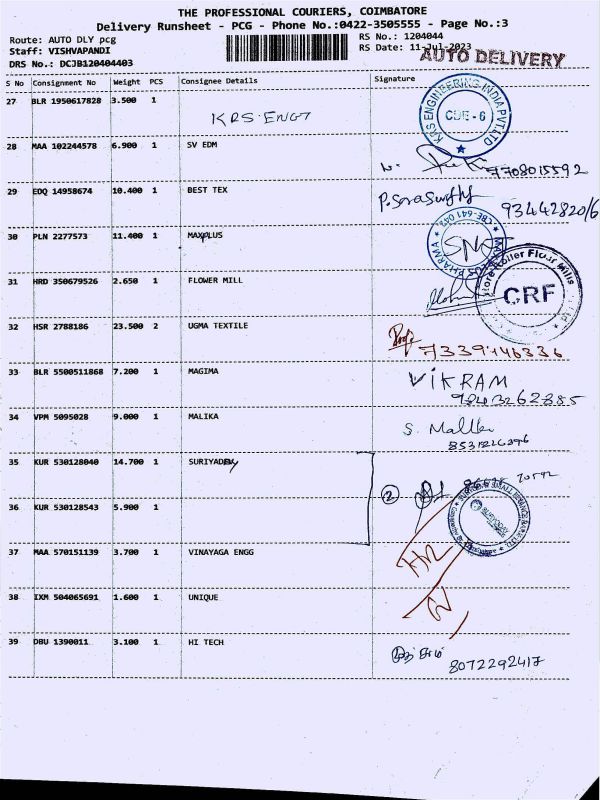 THE PROFESSIONAL COURIERS, COIMBATORE
Delivery Runsheet - PCG - Phone No.:0422-3505555 - Page No.:3
Route: AUTO DLY pcg
RS No.: 1204044
Staff: VISHVAPANDI
RS Date: 11-Jul-2023
AUTO DELIVERY
DRS No.: DCJB120404403
S No Consignment No Weight PCS Consignee Details Signature
27 BLR 1950617828 3.500 1 KRS.ENGT
KRS ENGINEERING INDIA PVT LTD
CUE-6
28 MAA 102244578 6.900 1 SV EDM
7708015592
29 EDQ 14958674 10.400 1 BEST TEX
93442820/6
30 PLN 2277573 11.400 1 MAXPLUS
PHARMA CBE-641 042
31 HRD 350679526 2.650 1 FLOWER MILL
Roller Flour Mills
CRF
32 HSR 2788186 23.500 2 UGMA TEXTILE
7339146336
33 BLR 5500511868 7.200 1 MAGIMA
VIKRAM
9843262885
34 VPM 5095028 9.000 1 MALIKA
S. Malli
35 KUR 530128040 14.700 1 SURIYADAY
2
36 KUR 530128543 5.900 1
37 MAA 570151139 3.700 1 VINAYAGA ENGG
38 IXM 504065691 1.600 1 UNIQUE
39 DBU 1390011 3.100 1 HI TECH
8072292417